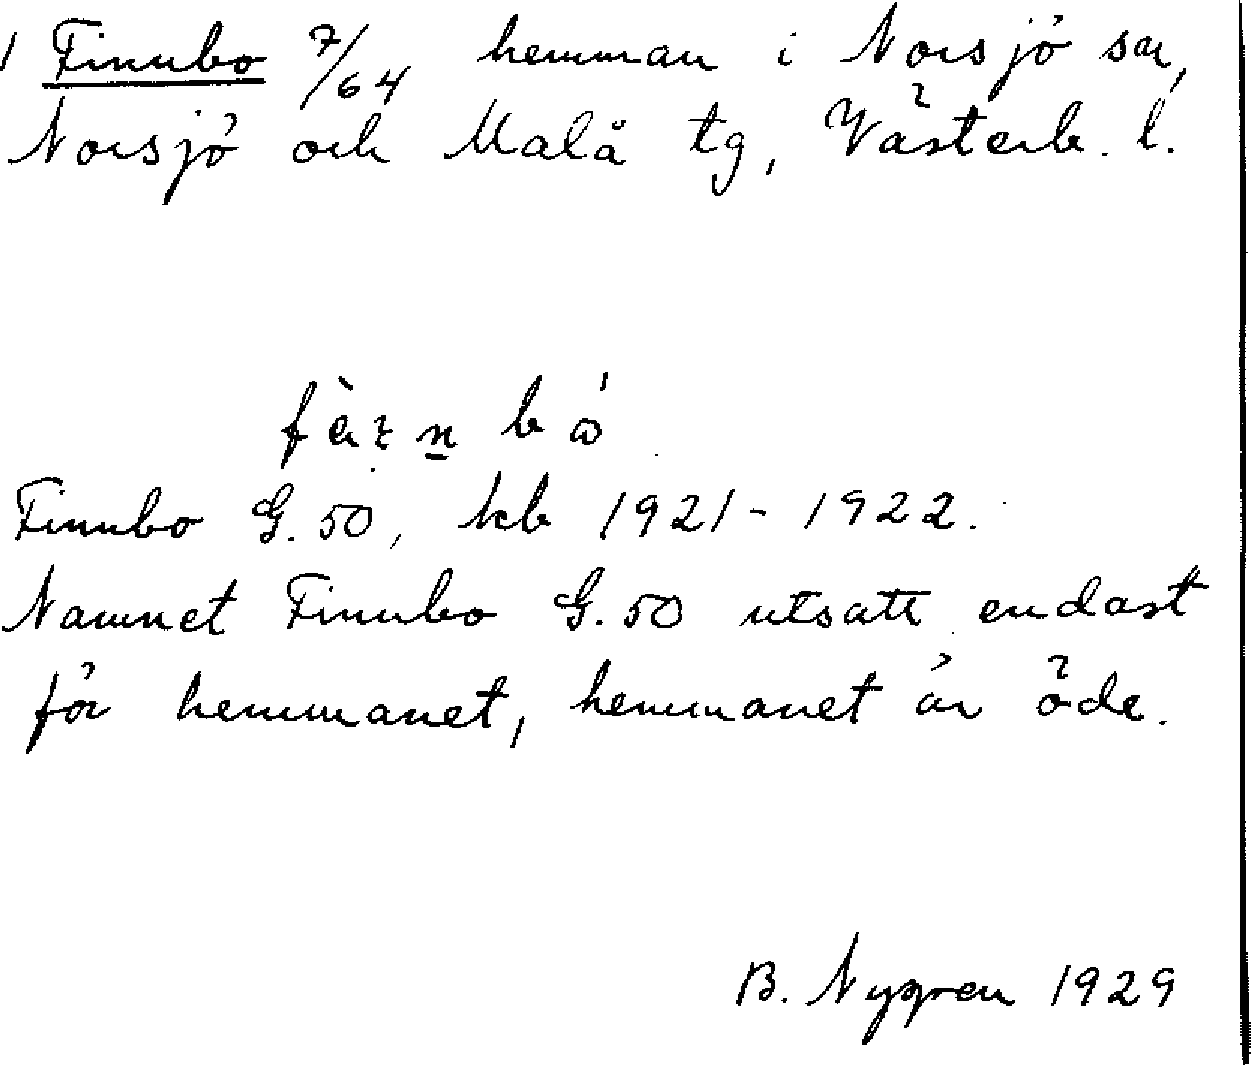 1 Finnbo 7/64 hemman i Norsjö sn,
Norsjö och Malå tg, Västerb. l.
Finnbo G. 50, kcb 1921-1922.
Namnet Finnbo G. 50 utsatt endast
för hemmanet, hemmanet är öde.
B. Nygren 1929